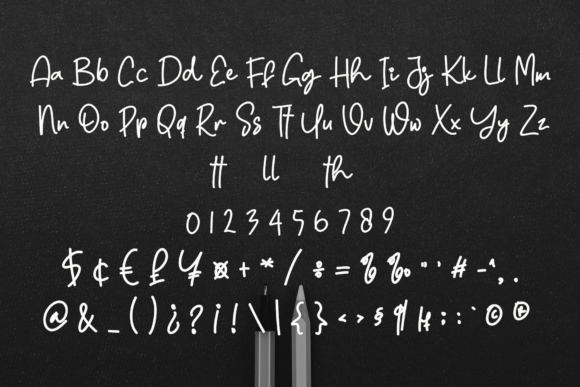 Aa Bb Cc Dd Ee Ff Gg Hh Ii Jj Kk Ll Mm
Nn Oo Pp Qq Rr Ss Tt Uu Vv Ww Xx Yy Zz
tt ll th
0 1 2 3 4 5 6 7 8 9
$ ¢ € £ ¥ ¤ + * / ÷ = % ‰ " ' # - ^ , .
@ & _ ( ) ¿ ? ¡ ! \ | { } < > § ¶ : ; © ®